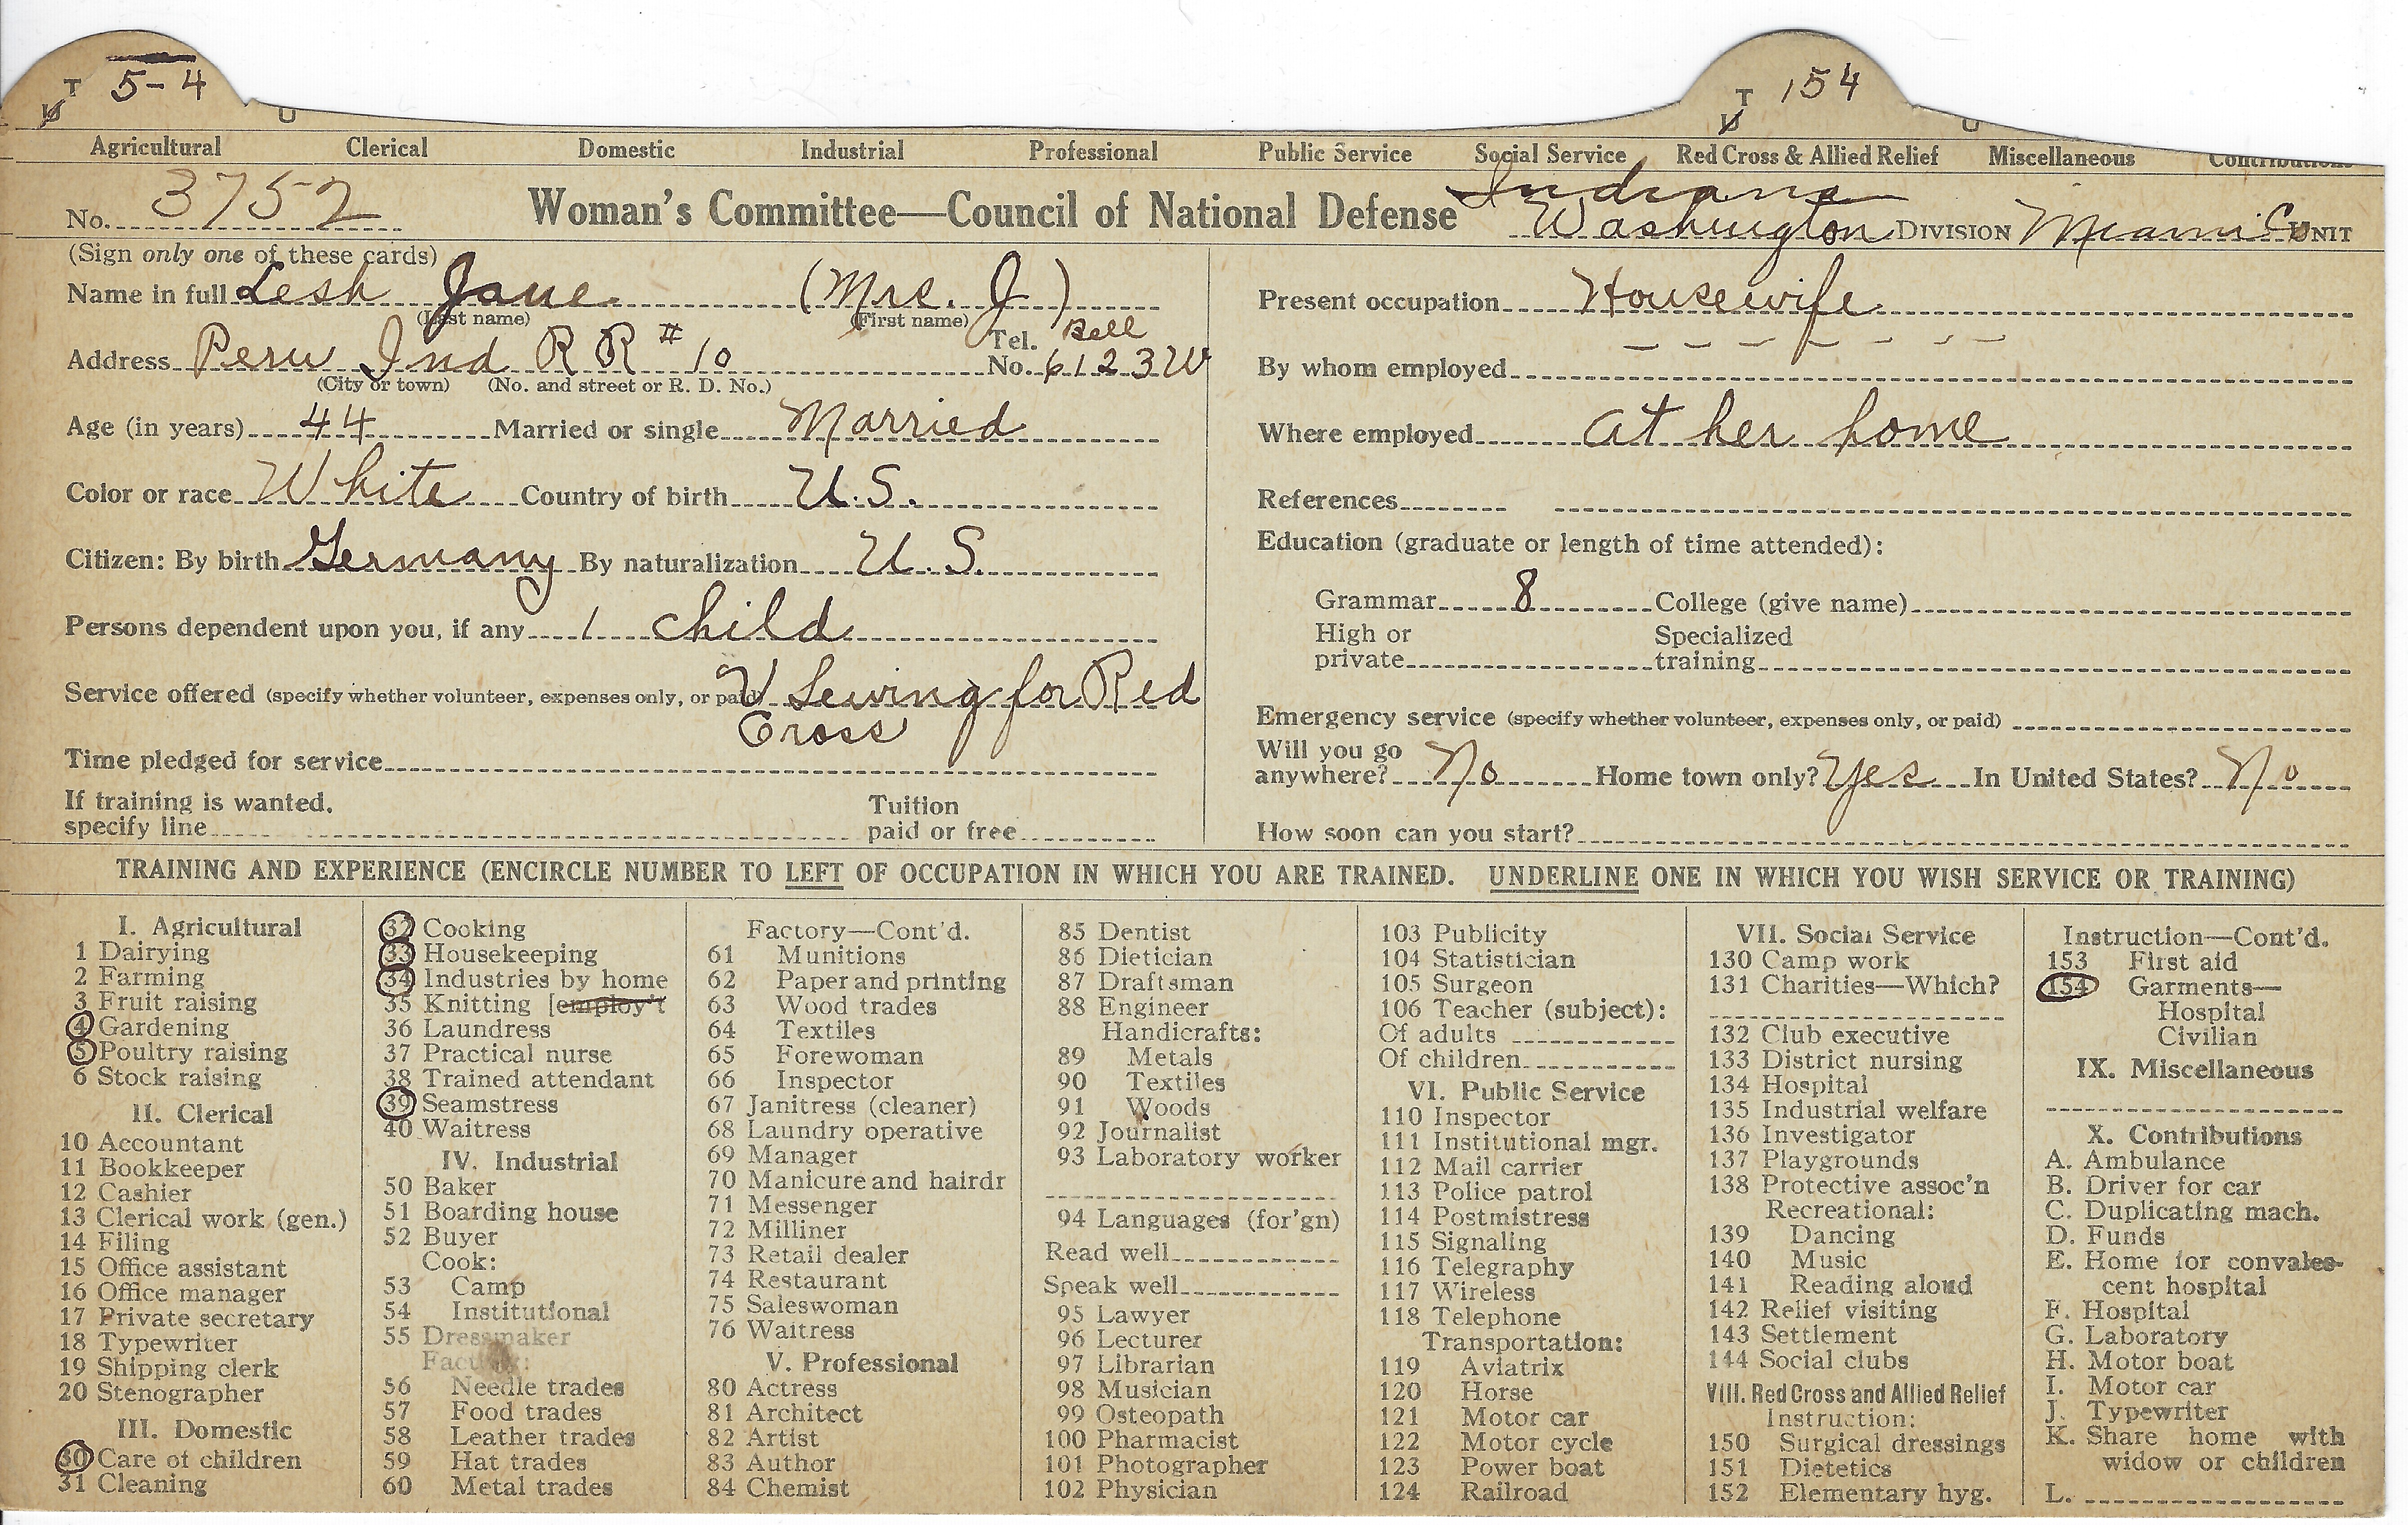 T 5-4 T 154
U U U U
Agricultural Clerical Domestic Industrial Professional Public Service Social Service Red Cross & Allied Relief Miscellaneous Contributions
Indiana
No. 3752 Woman's Committee—Council of National Defense Washington DIVISION Miami Co UNIT
(Sign only one of these cards)
Name in full Lesh Jane (Mrs. J)
(Last name) (First name)
Address Peru Ind R R # 10 Tel. No. Bell 6123W
(City or town) (No. and street or R. D. No.)
Age (in years) 44 Married or single Married
Color or race White Country of birth U.S.
Citizen: By birth Germany By naturalization U.S.
Persons dependent upon you, if any 1 child
Service offered (specify whether volunteer, expenses only, or paid) V Sewing for Red
Cross
Time pledged for service
If training is wanted,
specify line
Tuition
paid or free
Present occupation Housewife
By whom employed – – – – – – –
Where employed at her home
References
Education (graduate or length of time attended):
Grammar 8 College (give name)
High or
private
Specialized
training
Emergency service (specify whether volunteer, expenses only, or paid)
Will you go
anywhere? No Home town only? Yes In United States? No
How soon can you start?
TRAINING AND EXPERIENCE (ENCIRCLE NUMBER TO LEFT OF OCCUPATION IN WHICH YOU ARE TRAINED. UNDERLINE ONE IN WHICH YOU WISH SERVICE OR TRAINING)
I. Agricultural
1 Dairying
2 Farming
3 Fruit raising
4 Gardening
5 Poultry raising
6 Stock raising
II. Clerical
10 Accountant
11 Bookkeeper
12 Cashier
13 Clerical work (gen.)
14 Filing
15 Office assistant
16 Office manager
17 Private secretary
18 Typewriter
19 Shipping clerk
20 Stenographer
III. Domestic
30 Care of children
31 Cleaning
32 Cooking
33 Housekeeping
34 Industries by home
35 Knitting [employ't
36 Laundress
37 Practical nurse
38 Trained attendant
39 Seamstress
40 Waitress
IV. Industrial
50 Baker
51 Boarding house
52 Buyer
Cook:
53 Camp
54 Institutional
55 Dressmaker
Factory:
56 Needle trades
57 Food trades
58 Leather trades
59 Hat trades
60 Metal trades
Factory—Cont'd.
61 Munitions
62 Paper and printing
63 Wood trades
64 Textiles
65 Forewoman
66 Inspector
67 Janitress (cleaner)
68 Laundry operative
69 Manager
70 Manicure and hairdr
71 Messenger
72 Milliner
73 Retail dealer
74 Restaurant
75 Saleswoman
76 Waitress
V. Professional
80 Actress
81 Architect
82 Artist
83 Author
84 Chemist
85 Dentist
86 Dietician
87 Draftsman
88 Engineer
Handicrafts:
89 Metals
90 Textiles
91 Woods
92 Journalist
93 Laboratory worker
94 Languages (for'gn)
Read well
Speak well
95 Lawyer
96 Lecturer
97 Librarian
98 Musician
99 Osteopath
100 Pharmacist
101 Photographer
102 Physician
103 Publicity
104 Statistician
105 Surgeon
106 Teacher (subject):
Of adults
Of children
VI. Public Service
110 Inspector
111 Institutional mgr.
112 Mail carrier
113 Police patrol
114 Postmistress
115 Signaling
116 Telegraphy
117 Wireless
118 Telephone
Transportation:
119 Aviatrix
120 Horse
121 Motor car
122 Motor cycle
123 Power boat
124 Railroad
VII. Social Service
130 Camp work
131 Charities—Which?
132 Club executive
133 District nursing
134 Hospital
135 Industrial welfare
136 Investigator
137 Playgrounds
138 Protective assoc'n
Recreational:
139 Dancing
140 Music
141 Reading aloud
142 Relief visiting
143 Settlement
144 Social clubs
VIII. Red Cross and Allied Relief
Instruction:
150 Surgical dressings
151 Dietetics
152 Elementary hyg.
Instruction—Cont'd.
153 First aid
154 Garments—
Hospital
Civilian
IX. Miscellaneous
X. Contributions
A. Ambulance
B. Driver for car
C. Duplicating mach.
D. Funds
E. Home for convales-
cent hospital
F. Hospital
G. Laboratory
H. Motor boat
I. Motor car
J. Typewriter
K. Share home with
widow or children
L.